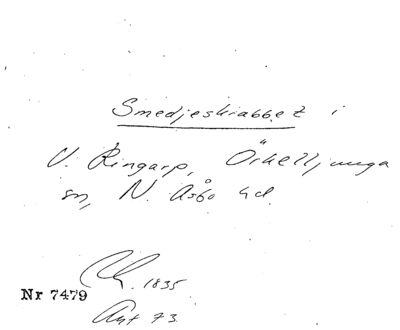 Smedjeskrabbet i
V. Ringarp, Örkelljunga
sn, N. Åsbo hd.
1835
Nr 7479
Avt 73.